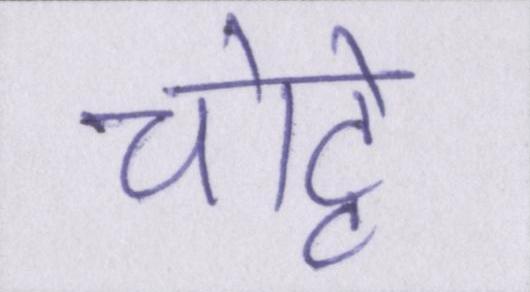 चोट्टे